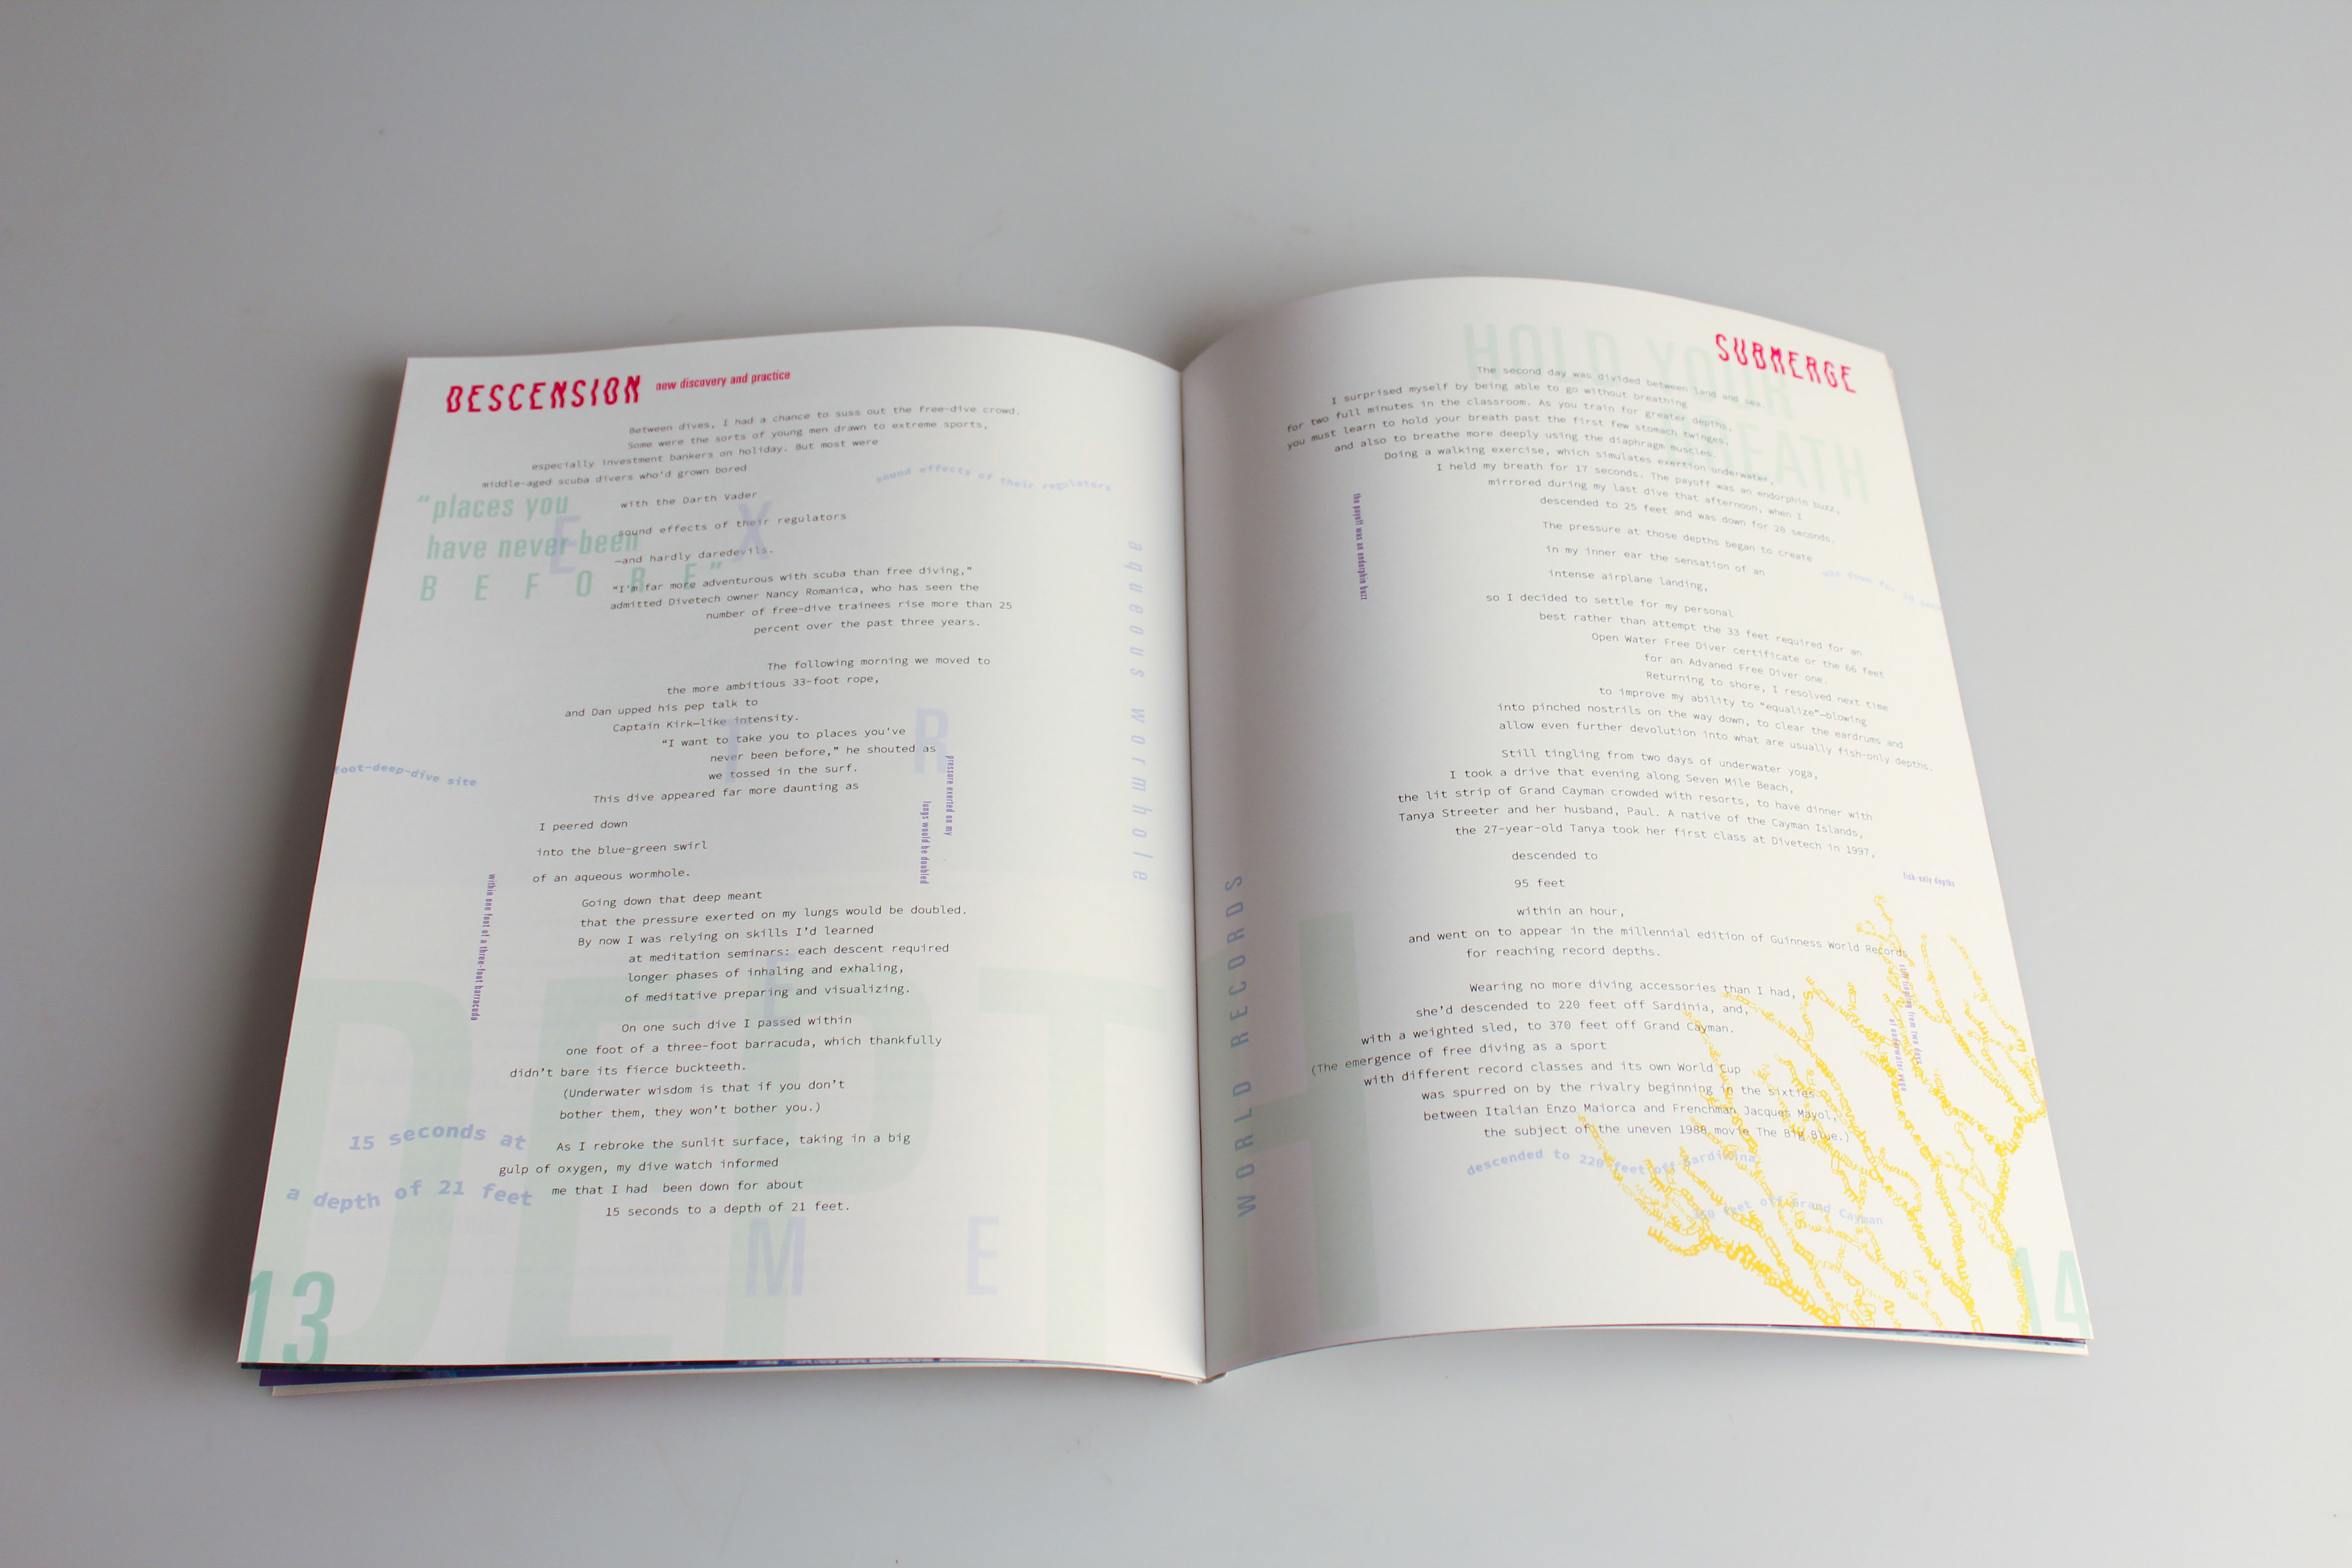 DESCENSION new discovery and practice
Between dives, I had a chance to suss out the free-dive crowd.
Some were the sorts of young men drawn to extreme sports,
especially investment bankers on holiday. But most were
middle-aged scuba divers who'd grown bored
with the Darth Vader
sound effects of their regulators
—and hardly daredevils.
"I'm far more adventurous with scuba than free diving,"
admitted Divetech owner Nancy Romanica, who has seen the
number of free-dive trainees rise more than 25
percent over the past three years.
The following morning we moved to
the more ambitious 33-foot rope,
and Dan upped his pep talk to
Captain Kirk—like intensity.
"I want to take you to places you've
never been before," he shouted as
we tossed in the surf.
This dive appeared far more daunting as
I peered down
into the blue-green swirl
of an aqueous wormhole.
Going down that deep meant
that the pressure exerted on my lungs would be doubled.
By now I was relying on skills I'd learned
at meditation seminars: each descent required
longer phases of inhaling and exhaling,
of meditative preparing and visualizing.
On one such dive I passed within
one foot of a three-foot barracuda, which thankfully
didn't bare its fierce buckteeth.
(Underwater wisdom is that if you don't
bother them, they won't bother you.)
As I rebroke the sunlit surface, taking in a big
gulp of oxygen, my dive watch informed
me that I had been down for about
15 seconds to a depth of 21 feet.
"places you
have never been
BEFORE"
sound effects of their regulators
EXTREME
aqueous wormhole
foot-deep-dive site
pressure exerted on my
lungs would be doubled
within one foot of a three-foot barracuda
15 seconds at
a depth of 21 feet
DEPTH
13
SUBMERGE
HOLD YOUR
BREATH
The second day was divided between land and sea.
I surprised myself by being able to go without breathing
for two full minutes in the classroom. As you train for greater depths,
you must learn to hold your breath past the first few stomach twinges,
and also to breathe more deeply using the diaphragm muscles.
Doing a walking exercise, which simulates exertion underwater,
I held my breath for 17 seconds. The payoff was an endorphin buzz,
mirrored during my last dive that afternoon, when I
descended to 25 feet and was down for 20 seconds.
The pressure at those depths began to create
in my inner ear the sensation of an
intense airplane landing,
so I decided to settle for my personal
best rather than attempt the 33 feet required for an
Open Water Free Diver certificate or the 66 feet
for an Advaned Free Diver one.
Returning to shore, I resolved next time
to improve my ability to "equalize"—blowing
into pinched nostrils on the way down, to clear the eardrums and
allow even further devolution into what are usually fish-only depths.
Still tingling from two days of underwater yoga,
I took a drive that evening along Seven Mile Beach,
the lit strip of Grand Cayman crowded with resorts, to have dinner with
Tanya Streeter and her husband, Paul. A native of the Cayman Islands,
the 27-year-old Tanya took her first class at Divetech in 1997,
descended to
95 feet
within an hour,
and went on to appear in the millennial edition of Guinness World Records
for reaching record depths.
Wearing no more diving accessories than I had,
she'd descended to 220 feet off Sardinia, and,
with a weighted sled, to 370 feet off Grand Cayman.
(The emergence of free diving as a sport
with different record classes and its own World Cup
was spurred on by the rivalry beginning in the sixties
between Italian Enzo Maiorca and Frenchman Jacques Mayol,
the subject of the uneven 1988 movie The Big Blue.)
the payoff was an endorphin buzz
was down for 20
fish-only depths
still tingling from two days
of underwater yoga
WORLD RECORDS
descended to 220 feet off Sardinina
feet off Grand Cayman
14